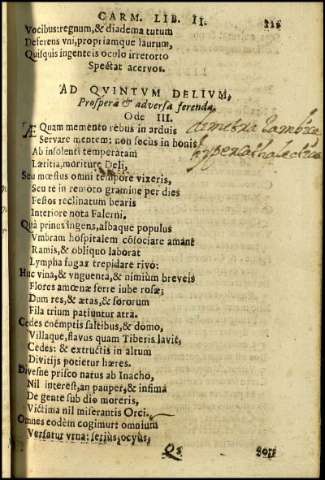 CARM. LIB. II.
Vocibus: regnum, & diadema tutum
Deferens vni, propriamque laurum,
Quisquis ingenteis oculo irretorto
Spectat acervos.
AD QVINTVM DELIVM,
Prospera & adversa ferenda.
Ode III.
ÆQuam memento rebus in arduis
Servare mentem: non secus in bonis
Ab insolenti temperatam
Lætitia, moriture Deli,
Seu mœstus omni tempore vixeris,
Seu te in remoto gramine per dies
Festos reclinatum bearis
Interiore nota Falerni.
Quà princs ingens, albaque populus
Vmbram hospitalem cōsociare amant
Ramis, & obliquo laborat
Lympha fugax trepidare rivo:
Huc vina, & vnguenta, & nimiùm breveis
Flores amœnæ ferre iube rosæ;
Dum res, & ætas, & sororum
Fila trium patiuntur atra.
Cedes coëmptis saltibus, & domo,
Villaque, flavus quam Tiberis lavit,
Cedes: & extructis in altum
Divitijs potietur hæres.
Divesne prisco natus ab Inacho,
Nil interest, an pauper, & infima
De gente sub dio moreris,
Victima nil miserantis Orci.
Omnes eodem cogimur omnium
Versatur vrna: seriùs, ocyùs,